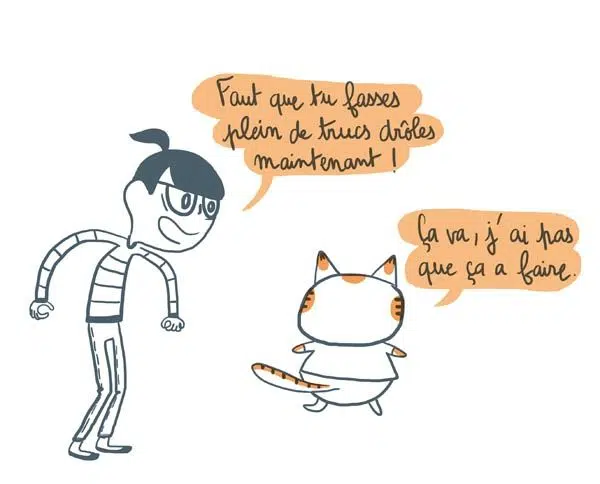 Faut que tu fasses
plein de trucs drôles
maintenant !
Ça va, j'ai pas
que ça a faire.